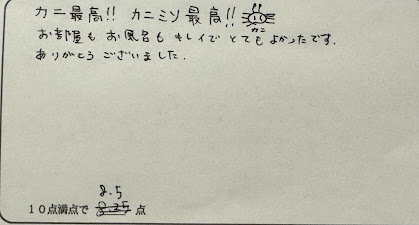 カニ最高!! カニミソ最高!!
カニ
お部屋もお風呂もキレイでとてもよかったです.
ありがとうございました.
8.5
10点満点で 8.25 点